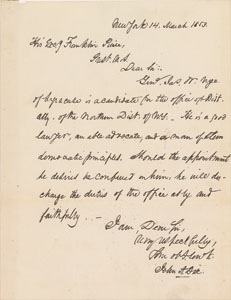 New York 14. March 1853.
His Exc'y Franklin Pierce
Prest. U.S.
Dear Sir:
Genl. Jas. W. Nye
of Syracuse is a candidate for the office of Dist.
Atty. of the Northern Dist. of N.Y. He is a good
lawyer, an able advocate, and a man of
democratic principles. Should the appointment
he desires be conferred on him, he will dis-
charge the duties of the office ably and
faithfully. -
I am, Dear Sir,
Very respectfully,
Your obt. servt.
John A. Dix